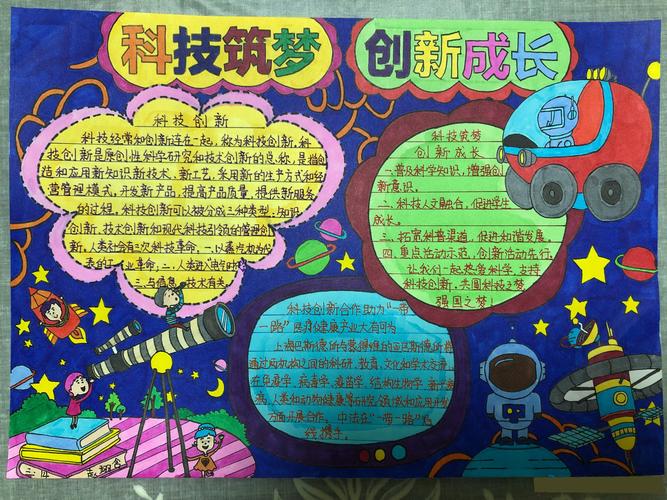 科技筑梦 创新成长
科技创新
科技经常和创新连在一起，称为科技创新，科
技创新是原创性科学研究和技术创新的总称，是指创
造和应用新知识新技术、新工艺，采用新的生产方式和经
营管理模式，开发新产品，提高产品质量，提供新服务
的过程，科技创新可以被分成三种类型，知识
创新、技术创新和现代科技引领的管理创
新。人类社会有三次科技革命，一、以蒸汽机为代
表的工业革命，二、人类进入电气时代
三、与信息 技术有关
科技筑梦
创新成长
一、普及科学知识，增强创
新意识。
二、科技人文融合，促进学生
成长。
三、拓宽科普渠道，促进和谐发展。
四、重点活动示范，创新活动先行
让我们一起热爱科学，支持
科技创新，共圆科技之梦
强国之梦！
科技创新合作助力“一带
一路”医疗健康产业大有可为
上海巴斯德所与
通过两机构之间的科研、教育、文化和学术交流
在免疫学、病毒学、疫苗学、结构生物学
人类和动物健康等研究领域和应用开发
方面开展合作。中法在“一带一路”
携手。